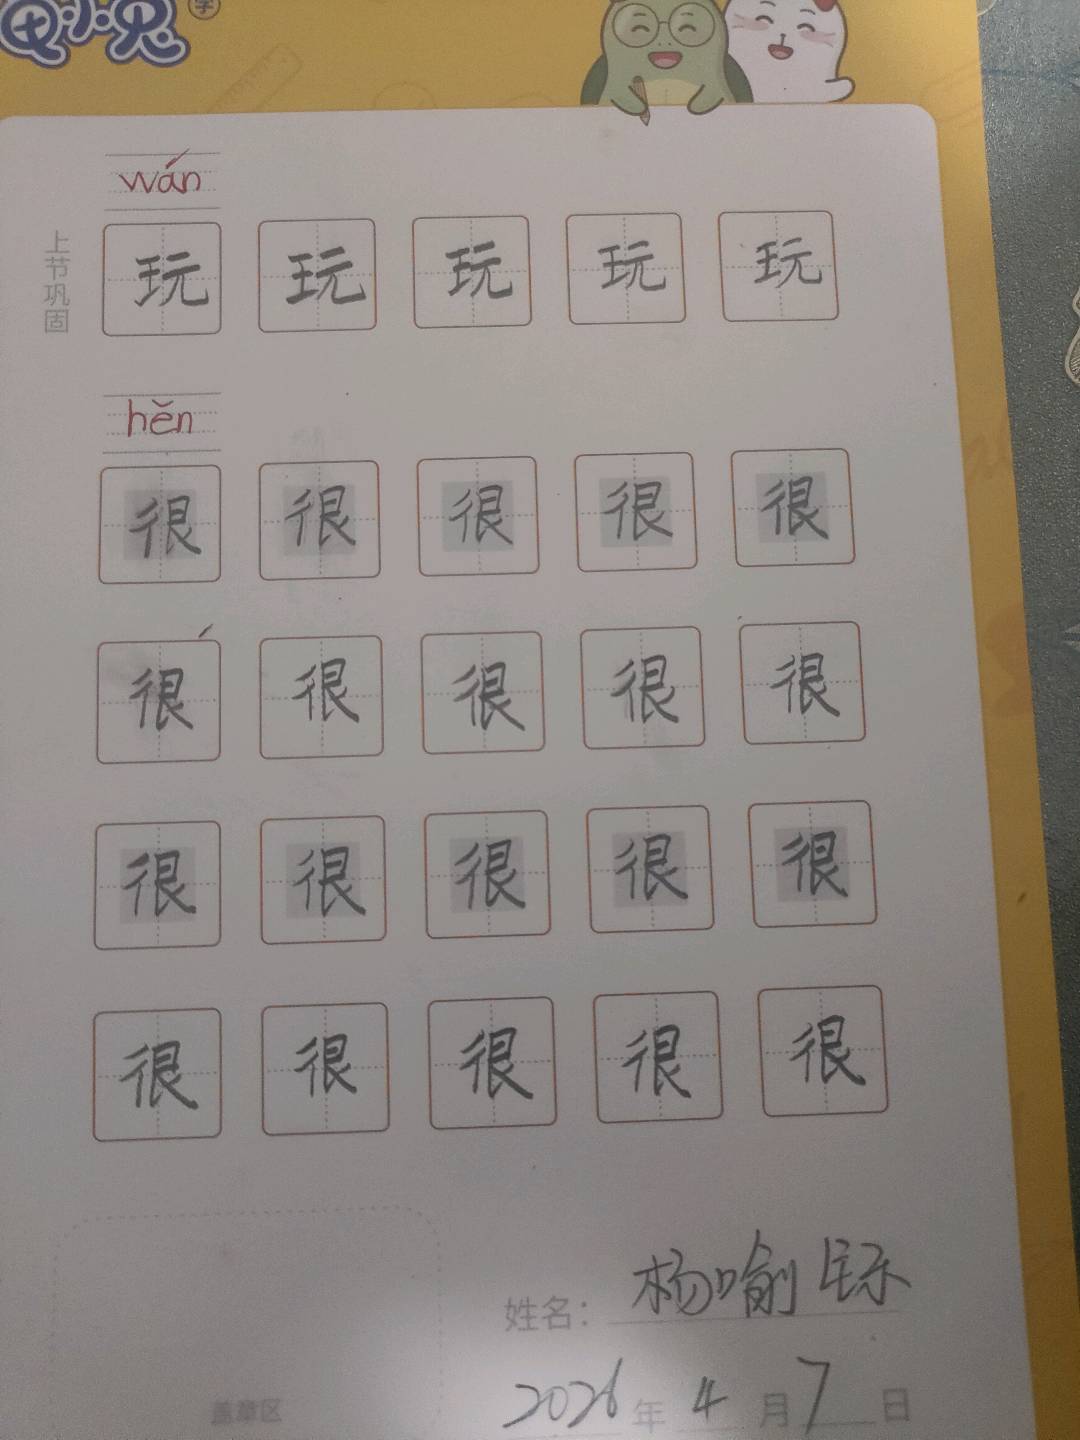 学
wán
上节巩固
玩 玩 玩 玩 玩
hěn
很 很 很 很 很
很 很 很 很 很
很 很 很 很 很
很 很 很 很 很
姓名: 杨喻
2026年4月7日
盖章区